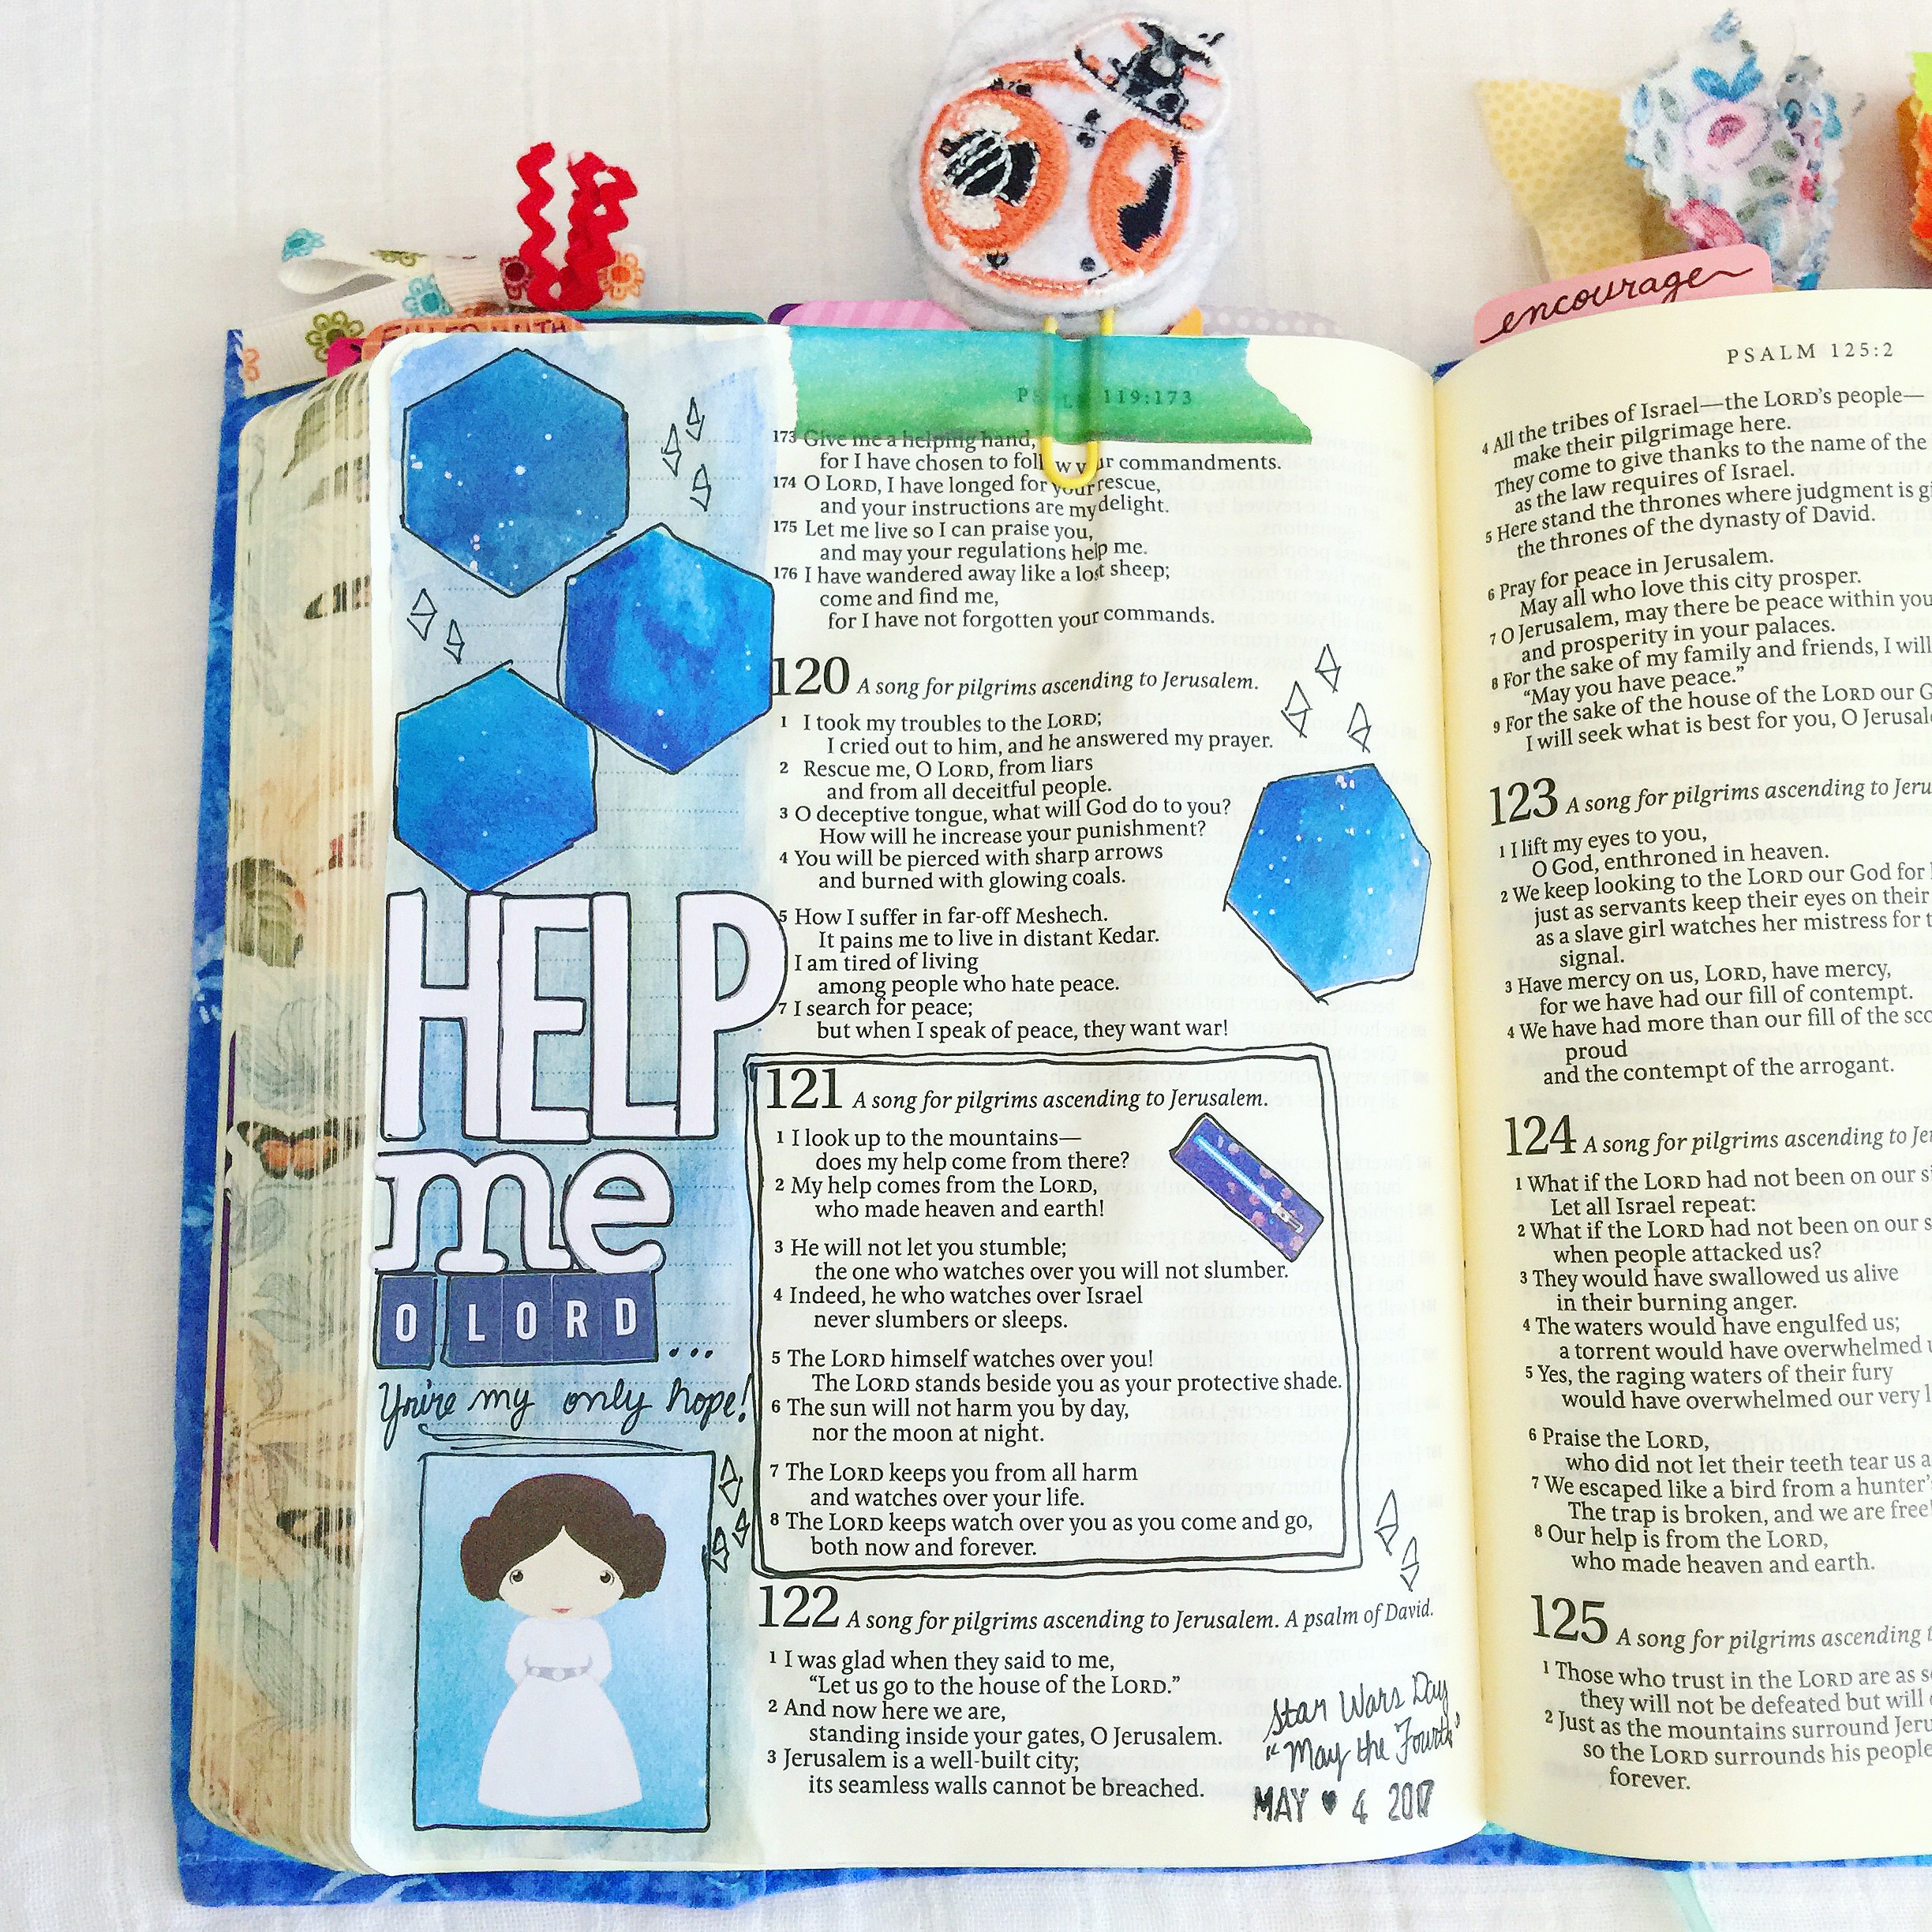 FILLED WITH
encourage
PSALM 119:173
173 Give me a helping hand,
for I have chosen to follow your commandments.
174 O LORD, I have longed for your rescue,
and your instructions are my delight.
175 Let me live so I can praise you,
and may your regulations help me.
176 I have wandered away like a lost sheep;
come and find me,
for I have not forgotten your commands.
120 A song for pilgrims ascending to Jerusalem.
1 I took my troubles to the LORD;
I cried out to him, and he answered my prayer.
2 Rescue me, O LORD, from liars
and from all deceitful people.
3 O deceptive tongue, what will God do to you?
How will he increase your punishment?
4 You will be pierced with sharp arrows
and burned with glowing coals.
5 How I suffer in far-off Meshech.
It pains me to live in distant Kedar.
I am tired of living
among people who hate peace.
7 I search for peace;
but when I speak of peace, they want war!
HELP
me
O LORD...
You're my only hope!
121 A song for pilgrims ascending to Jerusalem.
1 I look up to the mountains—
does my help come from there?
2 My help comes from the LORD,
who made heaven and earth!
3 He will not let you stumble;
the one who watches over you will not slumber.
4 Indeed, he who watches over Israel
never slumbers or sleeps.
5 The LORD himself watches over you!
The LORD stands beside you as your protective shade.
6 The sun will not harm you by day,
nor the moon at night.
7 The LORD keeps you from all harm
and watches over your life.
8 The LORD keeps watch over you as you come and go,
both now and forever.
122 A song for pilgrims ascending to Jerusalem. A psalm of David.
1 I was glad when they said to me,
“Let us go to the house of the LORD.”
2 And now here we are,
standing inside your gates, O Jerusalem.
3 Jerusalem is a well-built city;
its seamless walls cannot be breached.
Star Wars Day
"May the Fourth"
MAY ♥ 4 2017
PSALM 125:2
4 All the tribes of Israel—the LORD’s people—
make their pilgrimage here.
They come to give thanks to the name of the
as the law requires of Israel.
5 Here stand the thrones where judgment is
the thrones of the dynasty of David.
6 Pray for peace in Jerusalem.
May all who love this city prosper.
7 O Jerusalem, may there be peace within
and prosperity in your palaces.
8 For the sake of my family and friends, I will
“May you have peace.”
9 For the sake of the house of the LORD our
I will seek what is best for you, O
123 A song for pilgrims ascending to
1 I lift my eyes to you,
O God, enthroned in heaven.
2 We keep looking to the LORD our God for
just as servants keep their eyes on their
as a slave girl watches her mistress for
signal.
3 Have mercy on us, LORD, have mercy,
for we have had our fill of contempt.
4 We have had more than our fill of the
proud
and the contempt of the arrogant.
124 A song for pilgrims ascending to
1 What if the LORD had not been on our
Let all Israel repeat:
2 What if the LORD had not been on our
when people attacked us?
3 They would have swallowed us alive
in their burning anger.
4 The waters would have engulfed us;
a torrent would have overwhelmed
5 Yes, the raging waters of their fury
would have overwhelmed our very
6 Praise the LORD,
who did not let their teeth tear us
7 We escaped like a bird from a hunter’s
The trap is broken, and we are free
8 Our help is from the LORD,
who made heaven and earth.
125 A song for pilgrims ascending
1 Those who trust in the LORD are as
they will not be defeated but will
2 Just as the mountains surround
so the LORD surrounds his people
forever.